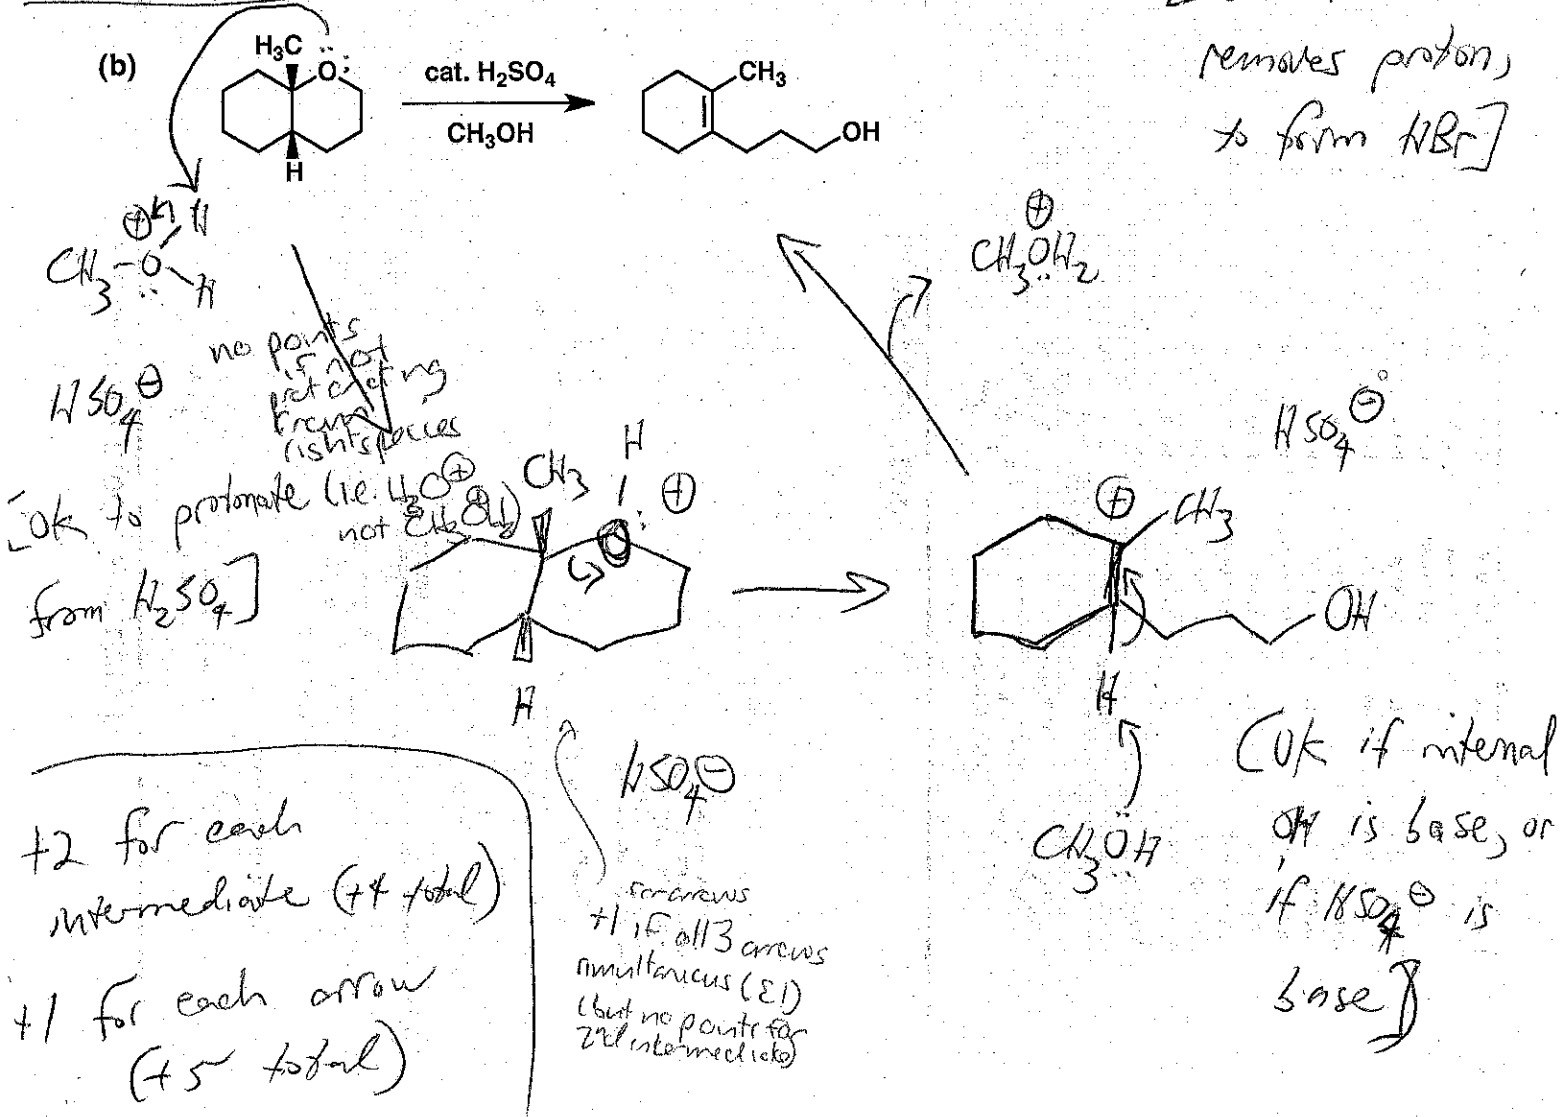 removes proton,
to form HBr]
(b)
H₃C
O
H
cat. H₂SO₄
CH₃OH
CH₃
OH
⊕
H
CH₃-O
H
HSO₄⊖
no points
if not
protonating
from
right species
[OK to protonate (i.e. H₃O⊕
not CH₃OH₂⊕)
from H₂SO₄]
CH₃
H
O
⊕
H
HSO₄⊖
⊕
CH₃OH₂
HSO₄⊖
⊕
CH₃
OH
H
CH₃OH
(OK if internal
OH is base, or
if HSO₄⊖ is
base)
+2 for each
intermediate (+4 total)
+1 for each arrow
(+5 total)
+1 if all 3 arrows
simultaneous (E1)
(but no points for
2nd intermediate)